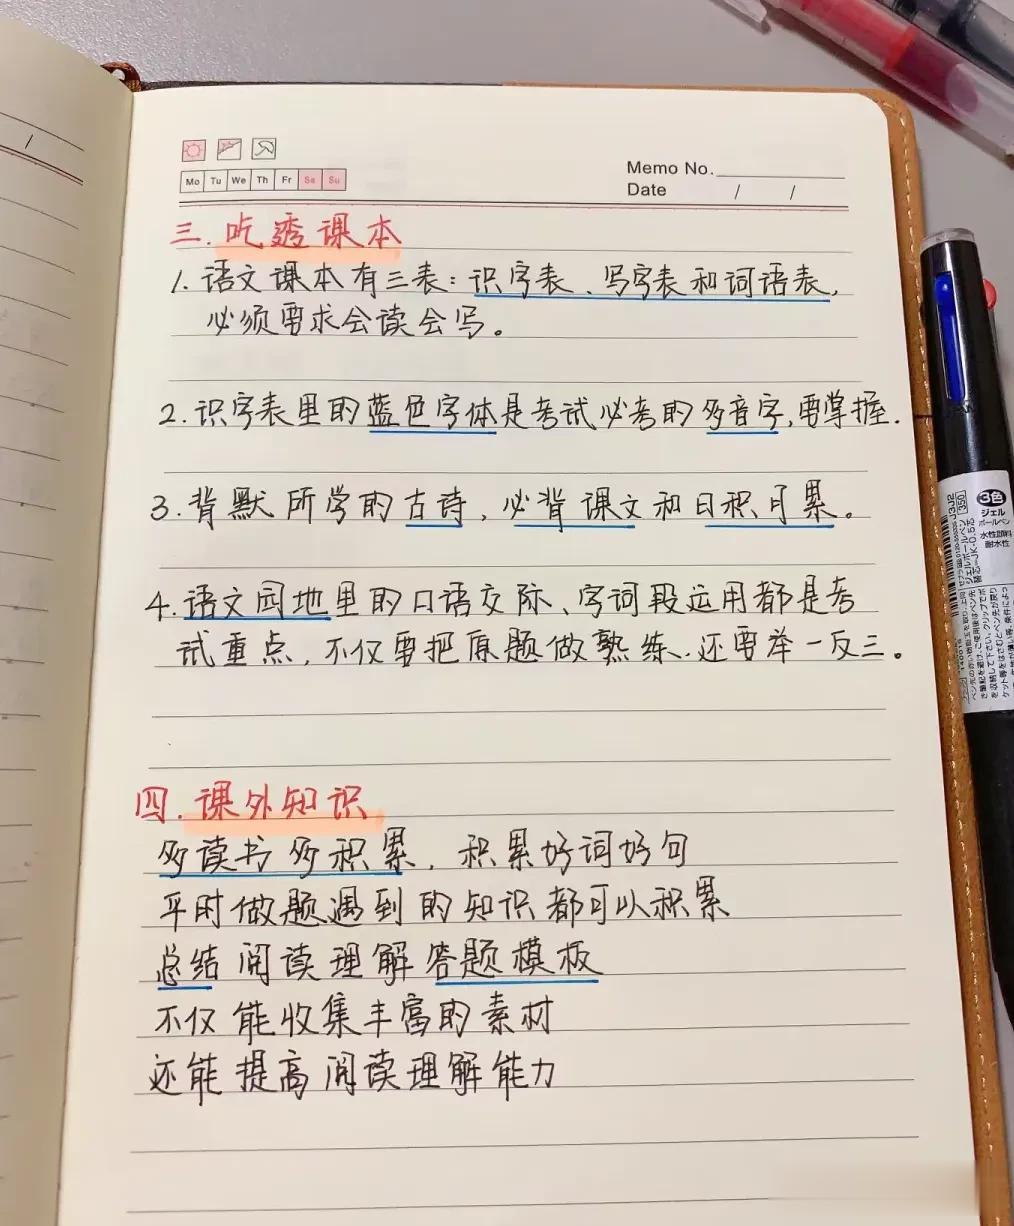 Mo Tu We Th Fr Sa Su
Memo No.
Date / /
三.吃透课本
1.语文课本有三表:识字表、写字表和词语表,
必须要求会读会写。
2.识字表里的蓝色字体是考试必考的多音字,要掌握.
3.背默所学的古诗,必背课文和日积月累。
4.语文园地里的口语交际、字词段运用都是考
试重点,不仅要把原题做熟练.还要举一反三。
四.课外知识
多读书多积累,积累好词好句
平时做题遇到的知识都可以积累
总结阅读理解答题模板
不仅能收集丰富的素材
还能提高阅读理解能力
3色
ジェル
ボールペン
水性顔料
耐水性